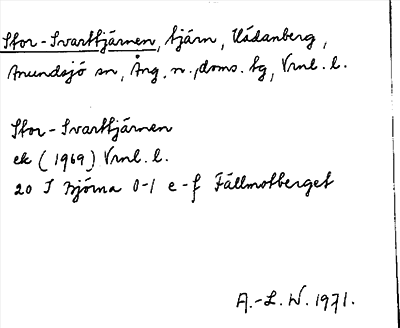 Stor-Svarttjärnen, tjärn, Uddanberg,
Anundsjö sn, Ång. n., doms. tg, Vrnl. l.
Stor-Svarttjärnen
ek (1969) Vrnl. l.
20 I Björna 0-1 e-f Fällmotberget
A.-L. W. 1971.